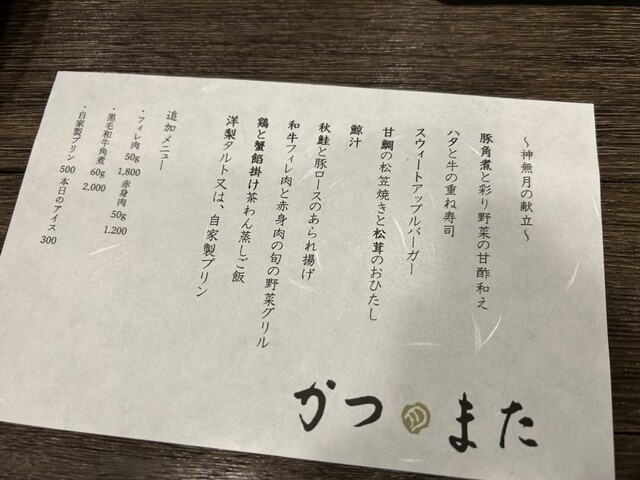 ～神無月の献立～
豚角煮と彩り野菜の甘酢和え
ハタと牛の重ね寿司
スウィートアップルバーガー
甘鯛の松笠焼きと松茸のおひたし
鯨汁
秋鮭と豚ロースのあられ揚げ
和牛フィレ肉と赤身肉の旬の野菜グリル
鶏と蟹餡掛け茶わん蒸しご飯
洋梨タルト又は、自家製プリン
追加メニュー
・フィレ肉 50g 1,800 赤身肉 50g 1.200
・黒毛和牛角煮 60g 2,000
・自家製プリン 500 本日のアイス 300
かつまた